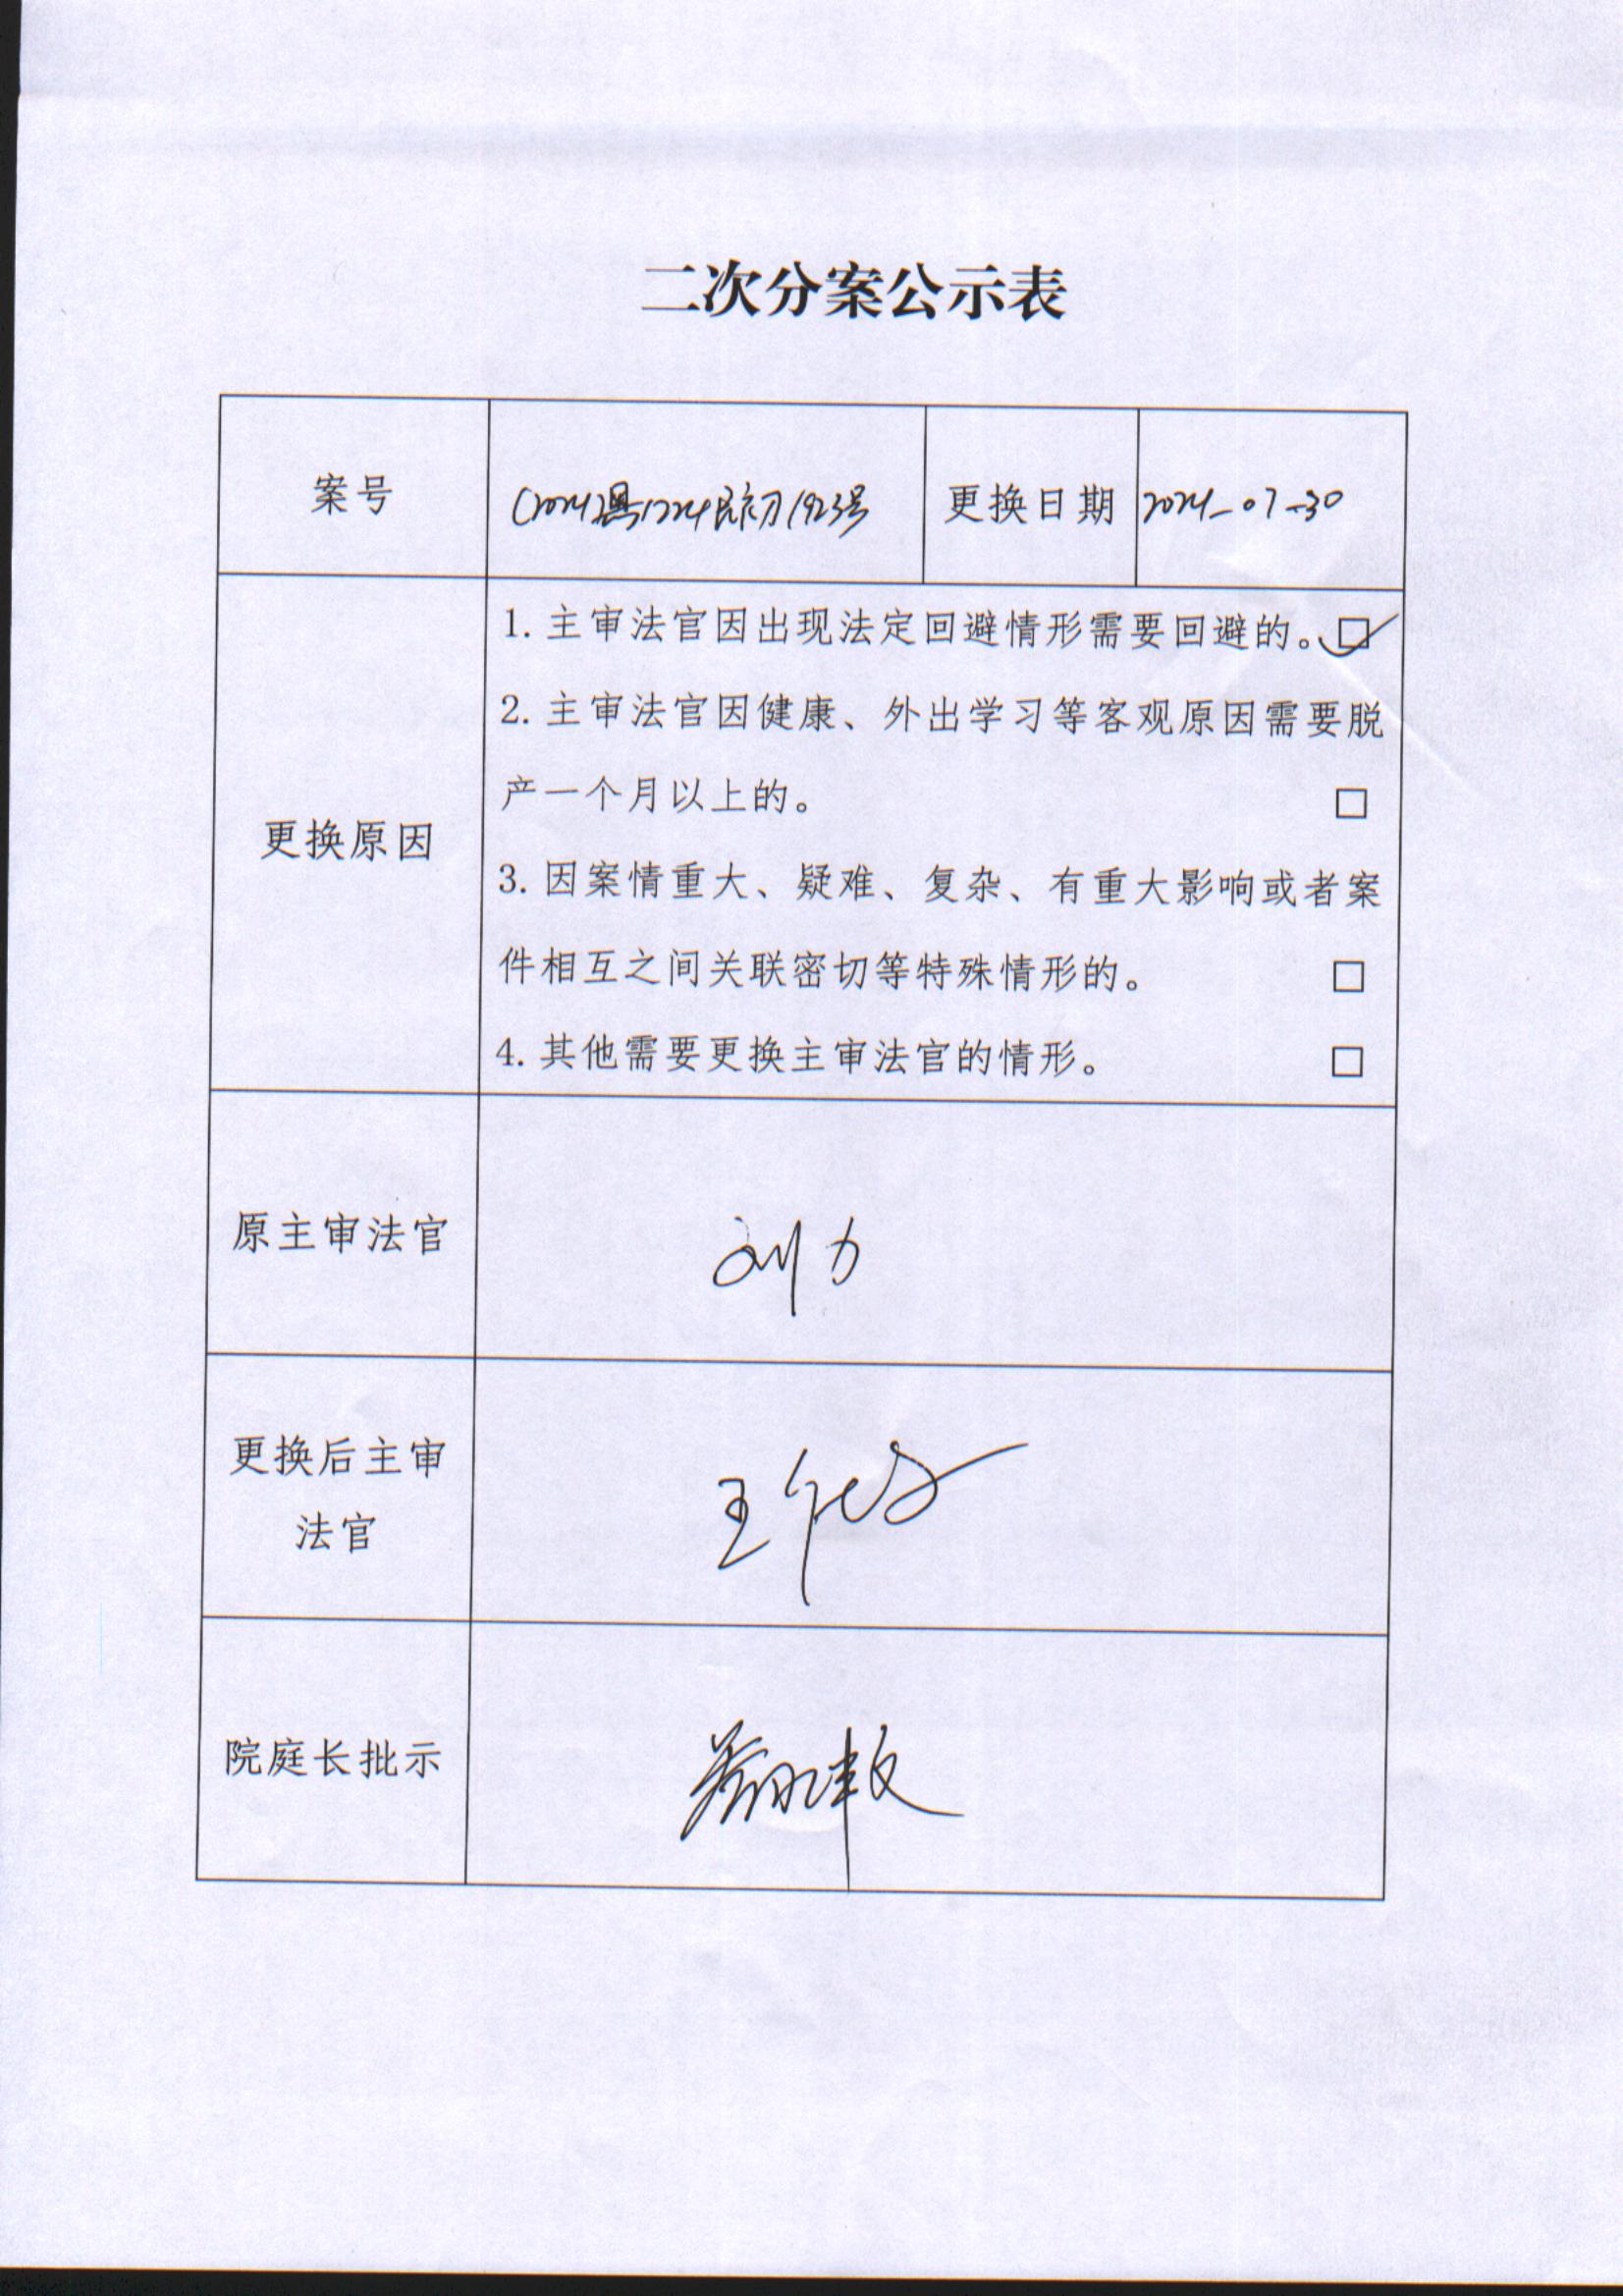 二次分案公示表
案号 (2024)粤1224民初1923号 更换日期 2024-07-30
更换原因
1. 主审法官因出现法定回避情形需要回避的。☑
2. 主审法官因健康、外出学习等客观原因需要脱
产一个月以上的。 □
3. 因案情重大、疑难、复杂、有重大影响或者案
件相互之间关联密切等特殊情形的。 □
4. 其他需要更换主审法官的情形。 □
原主审法官 刘力
更换后主审
法官
王
院庭长批示